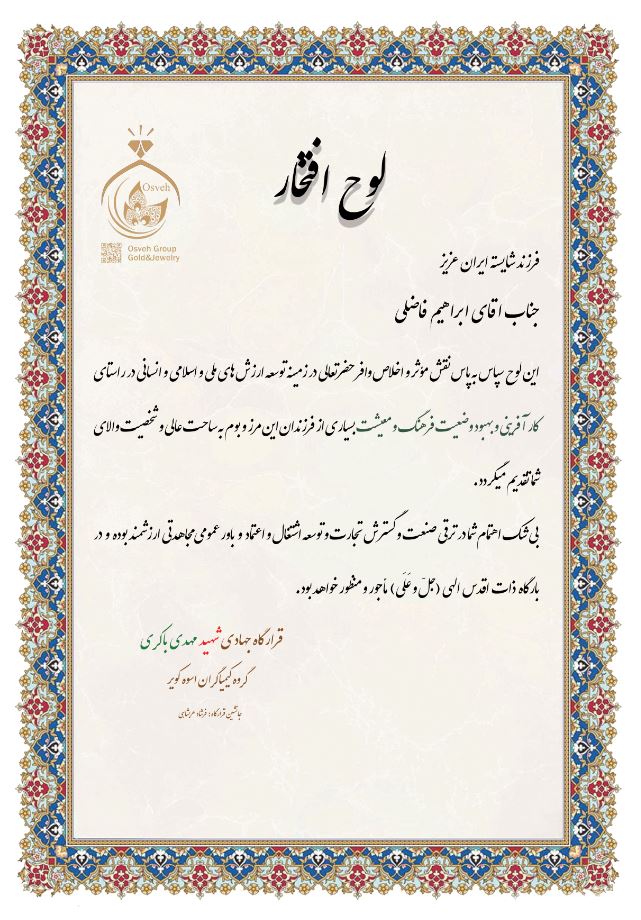 لوح افتخار
Osveh
Osveh Group
Gold&Jewelry
فرزند شایسته ایران عزیز
جناب اقای ابراهیم فاضلی
این لوح سپاس به پاس نقش مؤثر و اخلاص وافر حضرتعالی در زمینه توسعه ارزش های ملی و اسلامی و انسانی در راستای
کار آفرینی و بهبود وضعیت فرهنگ و معیشت بسیاری از فرزندان این مرز و بوم به ساحت عالی و شخصیت والای
شما تقدیم میگردد.
بی شک اهتمام شما در ترقی صنعت و گسترش تجارت و توسعه اشتغال و اعتماد و باور عمومی مجاهدتی ارزشمند بوده و در
بارگاه ذات اقدس الهی (جلّ و عَلَی) مأجور و منظور خواهد بود.
قرارگاه جهادی شهید مهدی باکری
گروه کیمیاگران اسوه کویر
جانشین قرارگاه: فرشاد عرشاهی